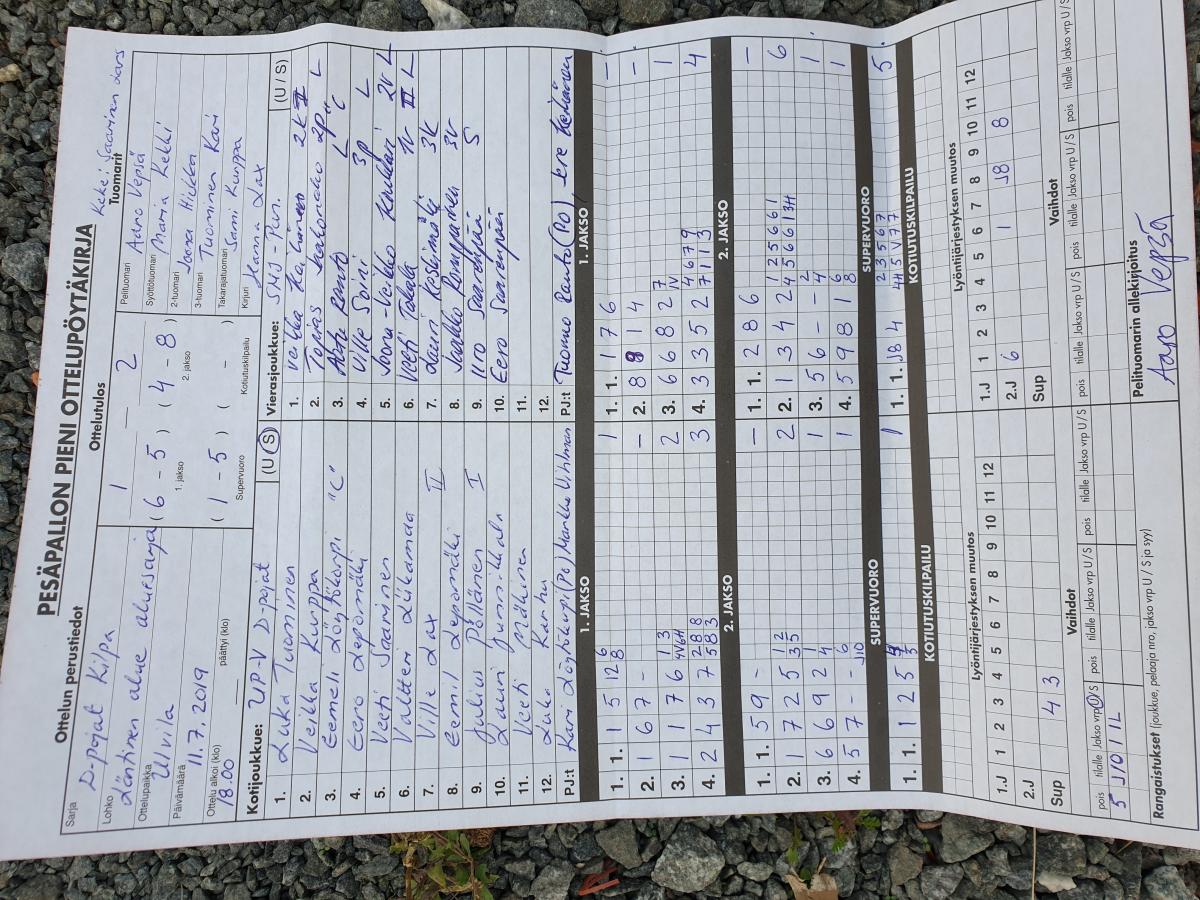 PESÄPALLON PIENI OTTELUPÖYTÄKIRJA
Ottelun perustiedot
Sarja
D-pojat Kilpa
Lohko
Läntinen alue aluesarja
Ottelupaikka
Ulvila
Päivämäärä
11.7.2019
Ottelu alkoi (klo) päättyi (klo)
18:00
Ottelutulos
1 2
( 6 - 5 ) ( 4 - 8 )
1. jakso 2. jakso
( 1 - 5 ) ( - )
Supervuoro Kotiutuskilpailu
Tuomarit
Pelituomari Aaro Vepsä
Syöttötuomari Maria Kekki
2-tuomari Hiukka
3-tuomari Tuominen Kari
Takarajatuomari Sami Kurppa
Kirjuri Hanna Lax
Kotijoukkue: UP-V D-pojat (U S)
1. Luka Tuominen
2. Veikka Kurppa
3. Eemeli Löytökorpi "C"
4. Eero Lepomäki
5. Veeti Saarinen
6. Valtteri Liikamaa
7. Ville Lax II
8. Eemil Lepomäki
9. Julius Pöllänen I
10. Lauri Junnikkala
11. Veeti Mäkinen
12. Luka Karhu
PJ:t Kari Löytökorpi (Po) Markku Vihlman
Vierasjoukkue: SMJ - Pun. (U S)
1. Veikka
2. Tomas 2P
3. L "C"
4. Ville Soini 3P L
5. Joona-Veikko 2V L
6. Veeti Takala 1V III L
7. Lauri Keskimäki 3K
8. Jaakko 3V
9. Iiro Saarenpää S
10. Eero Saarenpää
11.
12.
PJ:t Tuomo Rauto (PO) Tere
1. JAKSO
1. 1. 1 5 12 6 8 1
2. 1 6 7 - -
3. 1 1 7 6 1 3 4V 6H 2
4. 2 4 3 7 2 8 8 5 8 3 3
2. JAKSO
1. 1. 5 9 - -
2. 1 7 2 5 1 2 3 5 2
3. 6 6 9 2 1 4 1
4. 5 7 - - 6 J10 1
SUPERVUORO
1. 1. 1 2 5 1
KOTIUTUSKILPAILU
1. JAKSO
1. 1. 1 7 6 -
2. 8 8 1 4 -
3. 6 6 8 2 7 IV 1
4. 3 3 5 2 4 6 7 9 7 1 1 3 4
2. JAKSO
1. 1. 2 8 6 -
2. 1 3 4 2 1 2 5 6 6 1 4 5 6 6 1 3H 6
3. 5 6 - - 2 4 1
4. 5 9 8 1 6 8 1
SUPERVUORO
1. 1. J8 4 2 3 5 6 7 4H 5 V 7 7 5
KOTIUTUSKILPAILU
Lyöntijärjestyksen muutos
1 2 3 4 5 6 7 8 9 10 11 12
1.J
2.J
Sup 4 3
Vaihdot
pois tilalle Jakso vrp U/S pois tilalle Jakso vrp U/S pois tilalle Jakso vrp U/S
5 J10 1 1L
Lyöntijärjestyksen muutos
1 2 3 4 5 6 7 8 9 10 11 12
1.J
2.J 6 1 J8 8
Sup
Vaihdot
pois tilalle Jakso vrp U/S pois tilalle Jakso vrp U/S pois tilalle Jakso vrp U/S
Rangaistukset (joukkue, pelaaja nro, jakso vrp U / S ja syy)
Pelituomarin allekirjoitus
Aaro Vepsä